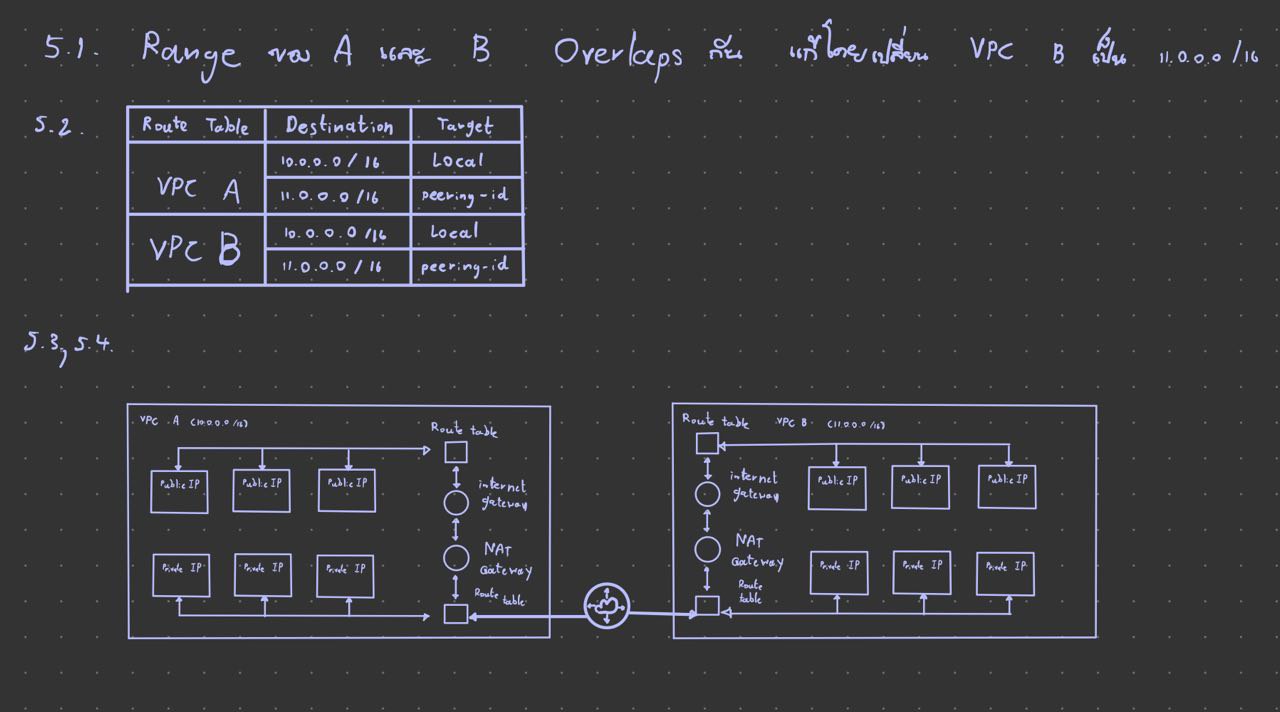 5.1. Range ของ A และ B Overlaps กัน แก้โดยเปลี่ยน VPC B เป็น 11.0.0.0/16
5.2.
Route Table Destination Target
VPC A
10.0.0.0/16 Local
11.0.0.0/16 peering-id
VPC B
10.0.0.0/16 Local
11.0.0.0/16 peering-id
5.3, 5.4.
VPC A (10.0.0.0/16)
Route table
Public IP Public IP Public IP
internet
gateway
NAT
Gateway
Private IP Private IP Private IP
Route table
Route table VPC B (11.0.0.0/16)
internet
gateway
Public IP Public IP Public IP
NAT
Gateway
Private IP Private IP Private IP
Route
table